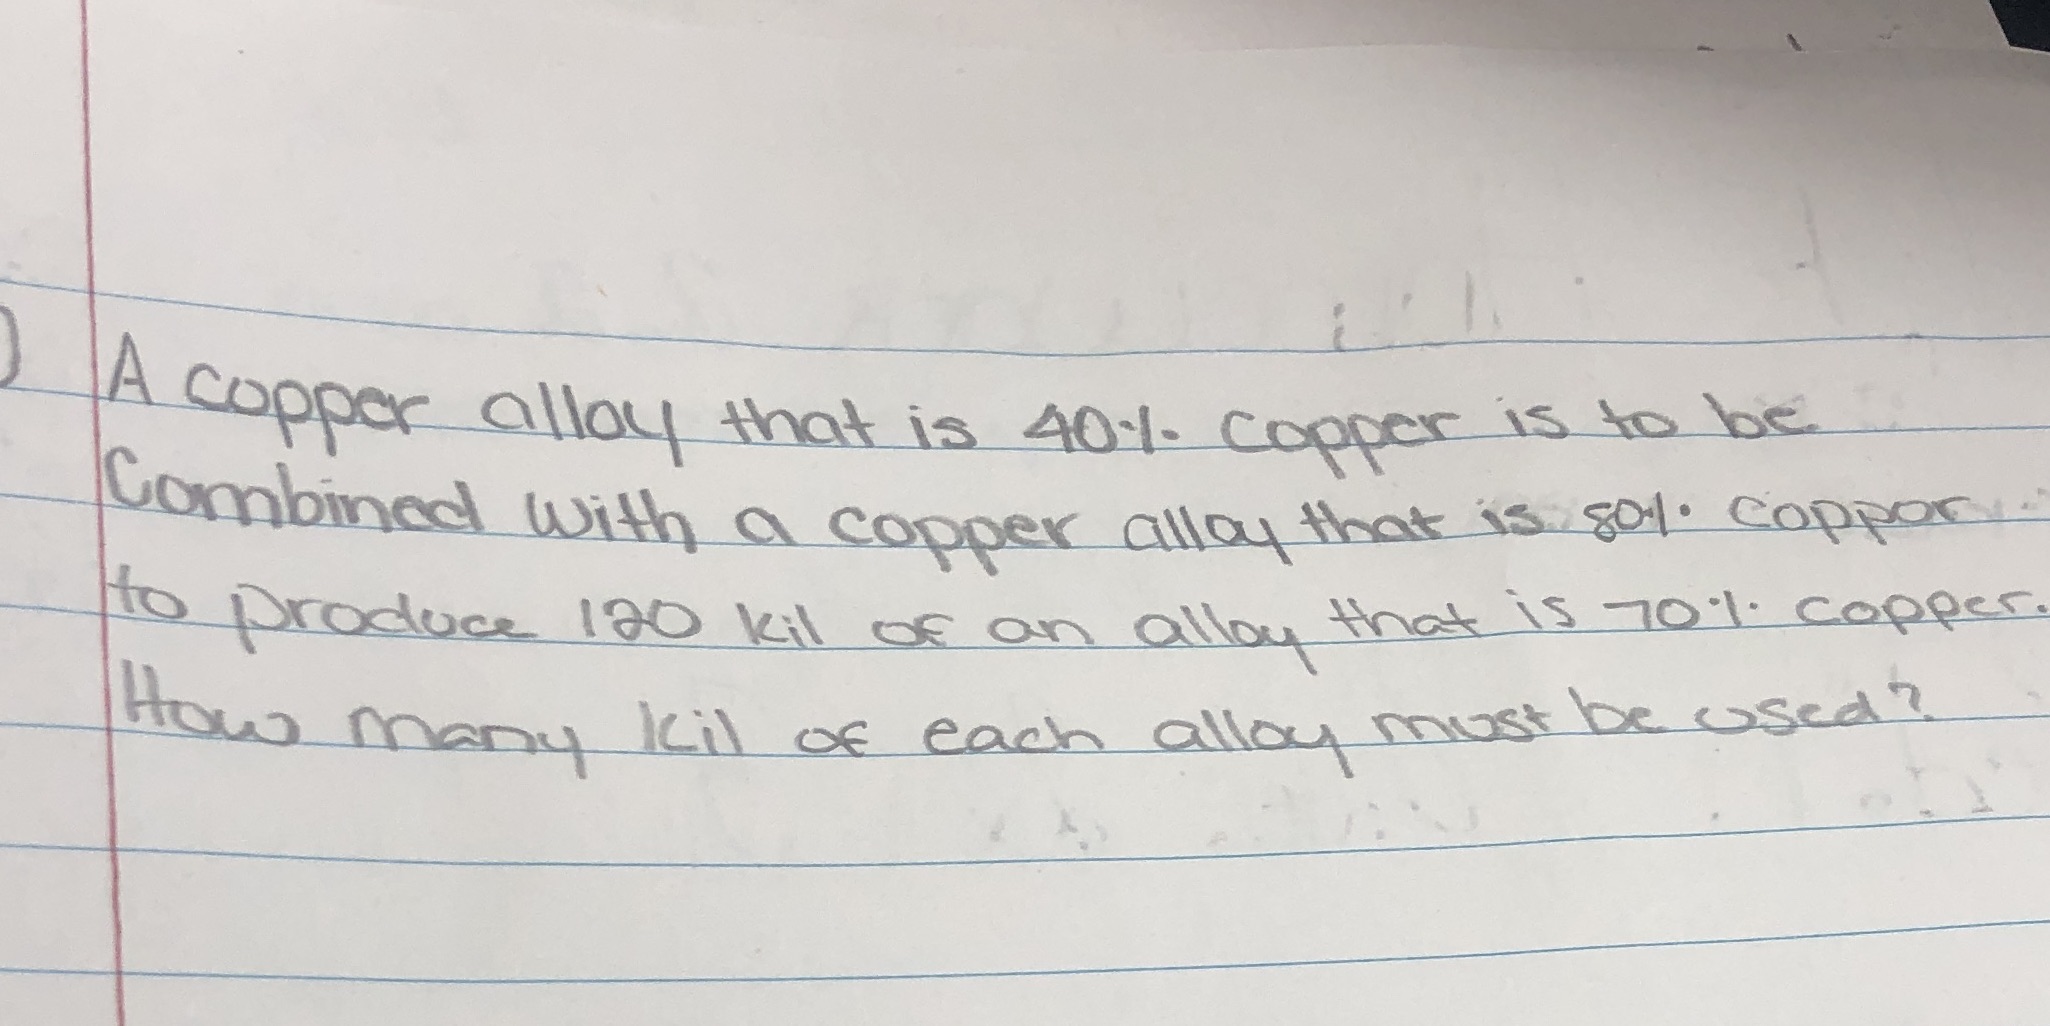 ) A copper alloy that is 40% copper is to be
Combined with a copper alloy that is 80% coppor
to produce 120 kil of an alloy that is 70% copper.
How many kil of each alloy must be used?